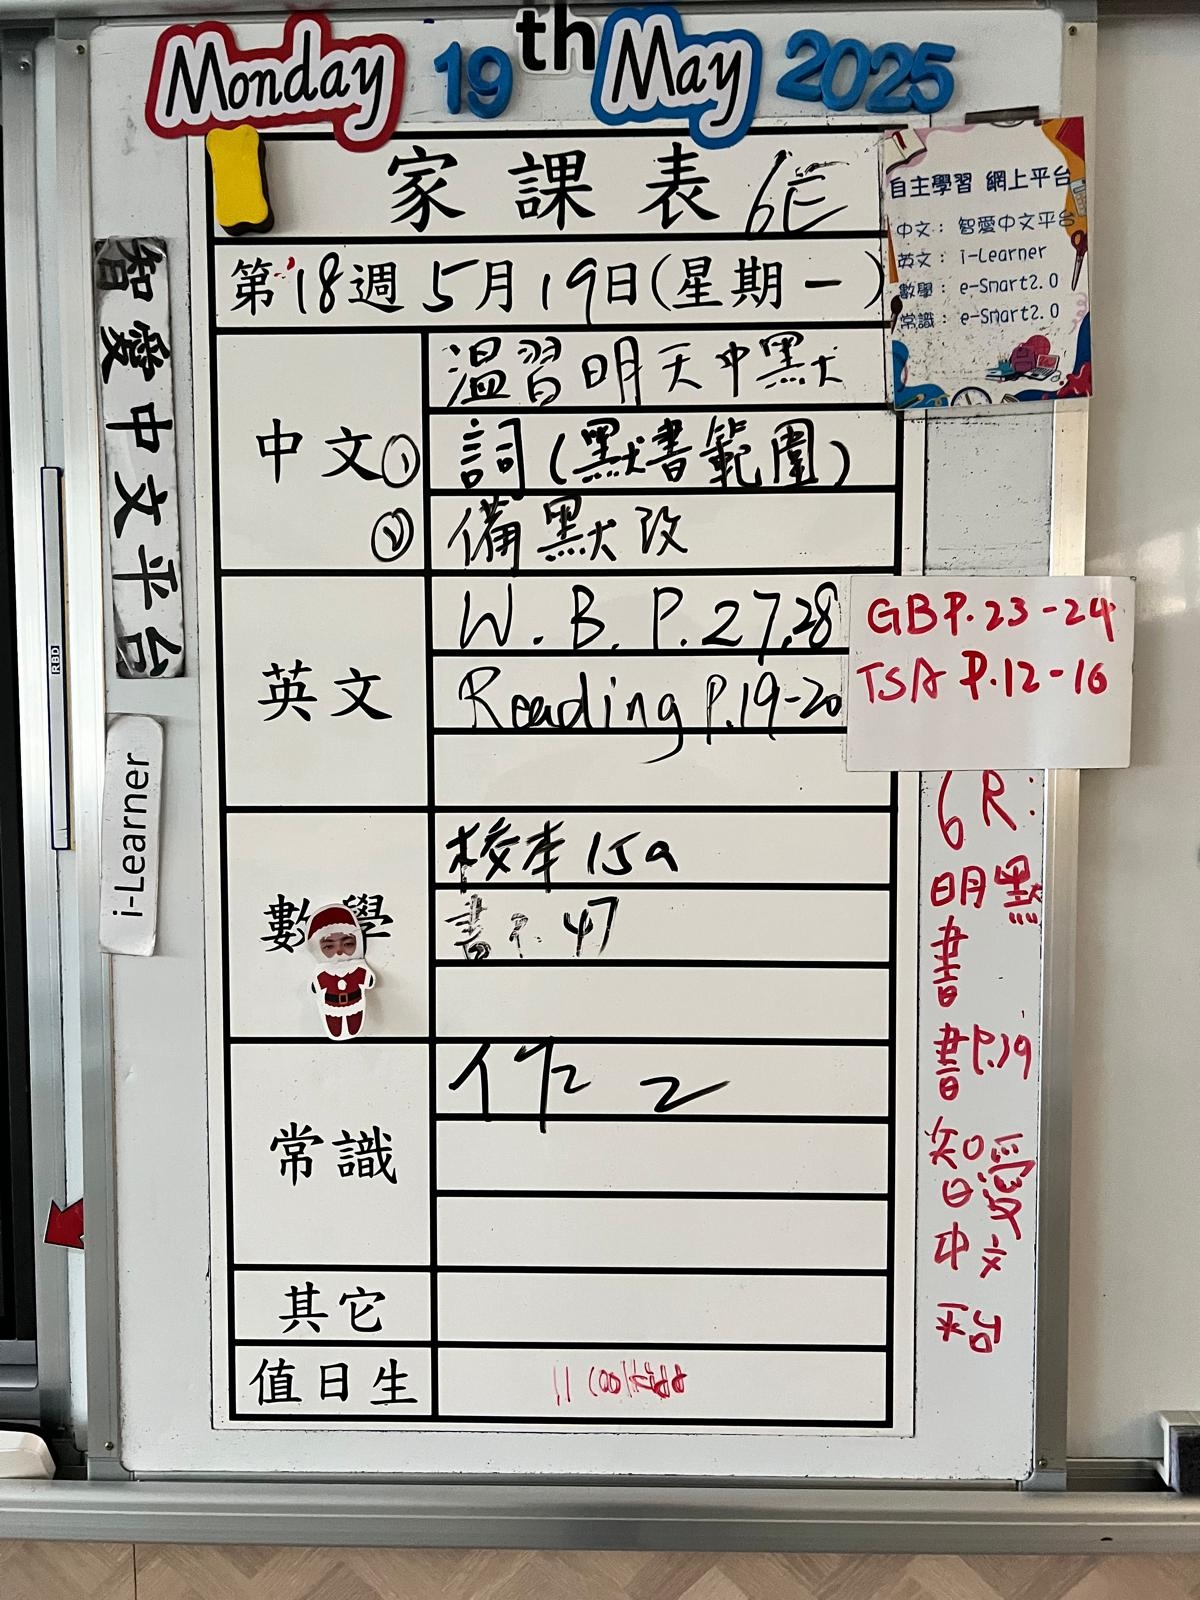 Monday 19th May 2025
家課表 6E
第18週 5月19日(星期一)
自主學習 網上平台
中文： 智愛中文平台
英文： i-Learner
數學： e-Smart2.0
常識： e-Smart2.0
智愛中文平台
i-Learner
RBD
中文①
溫習明天中默
詞(默書範圍)
② 備默改
英文
W.B. P.27,28
Reading P.19-20
GB P.23-24
TSA P.12-16
數學
校本15a
書P.47
常識
作2
其它
值日生
6R:
明默
書
書P.19
智愛
中文
平台